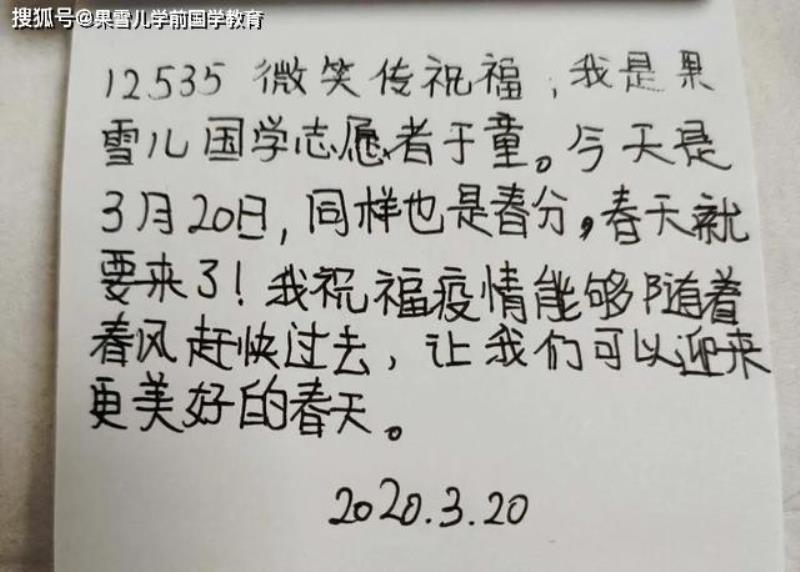 搜狐号@果雪儿学前国学教育
12535 微笑传祝福，我是果
雪儿国学志愿者于童。今天是
3月20日，同样也是春分，春天就
要来了！我祝福疫情能够随着
春风赶快过去，让我们可以迎来
更美好的春天。
2020.3.20